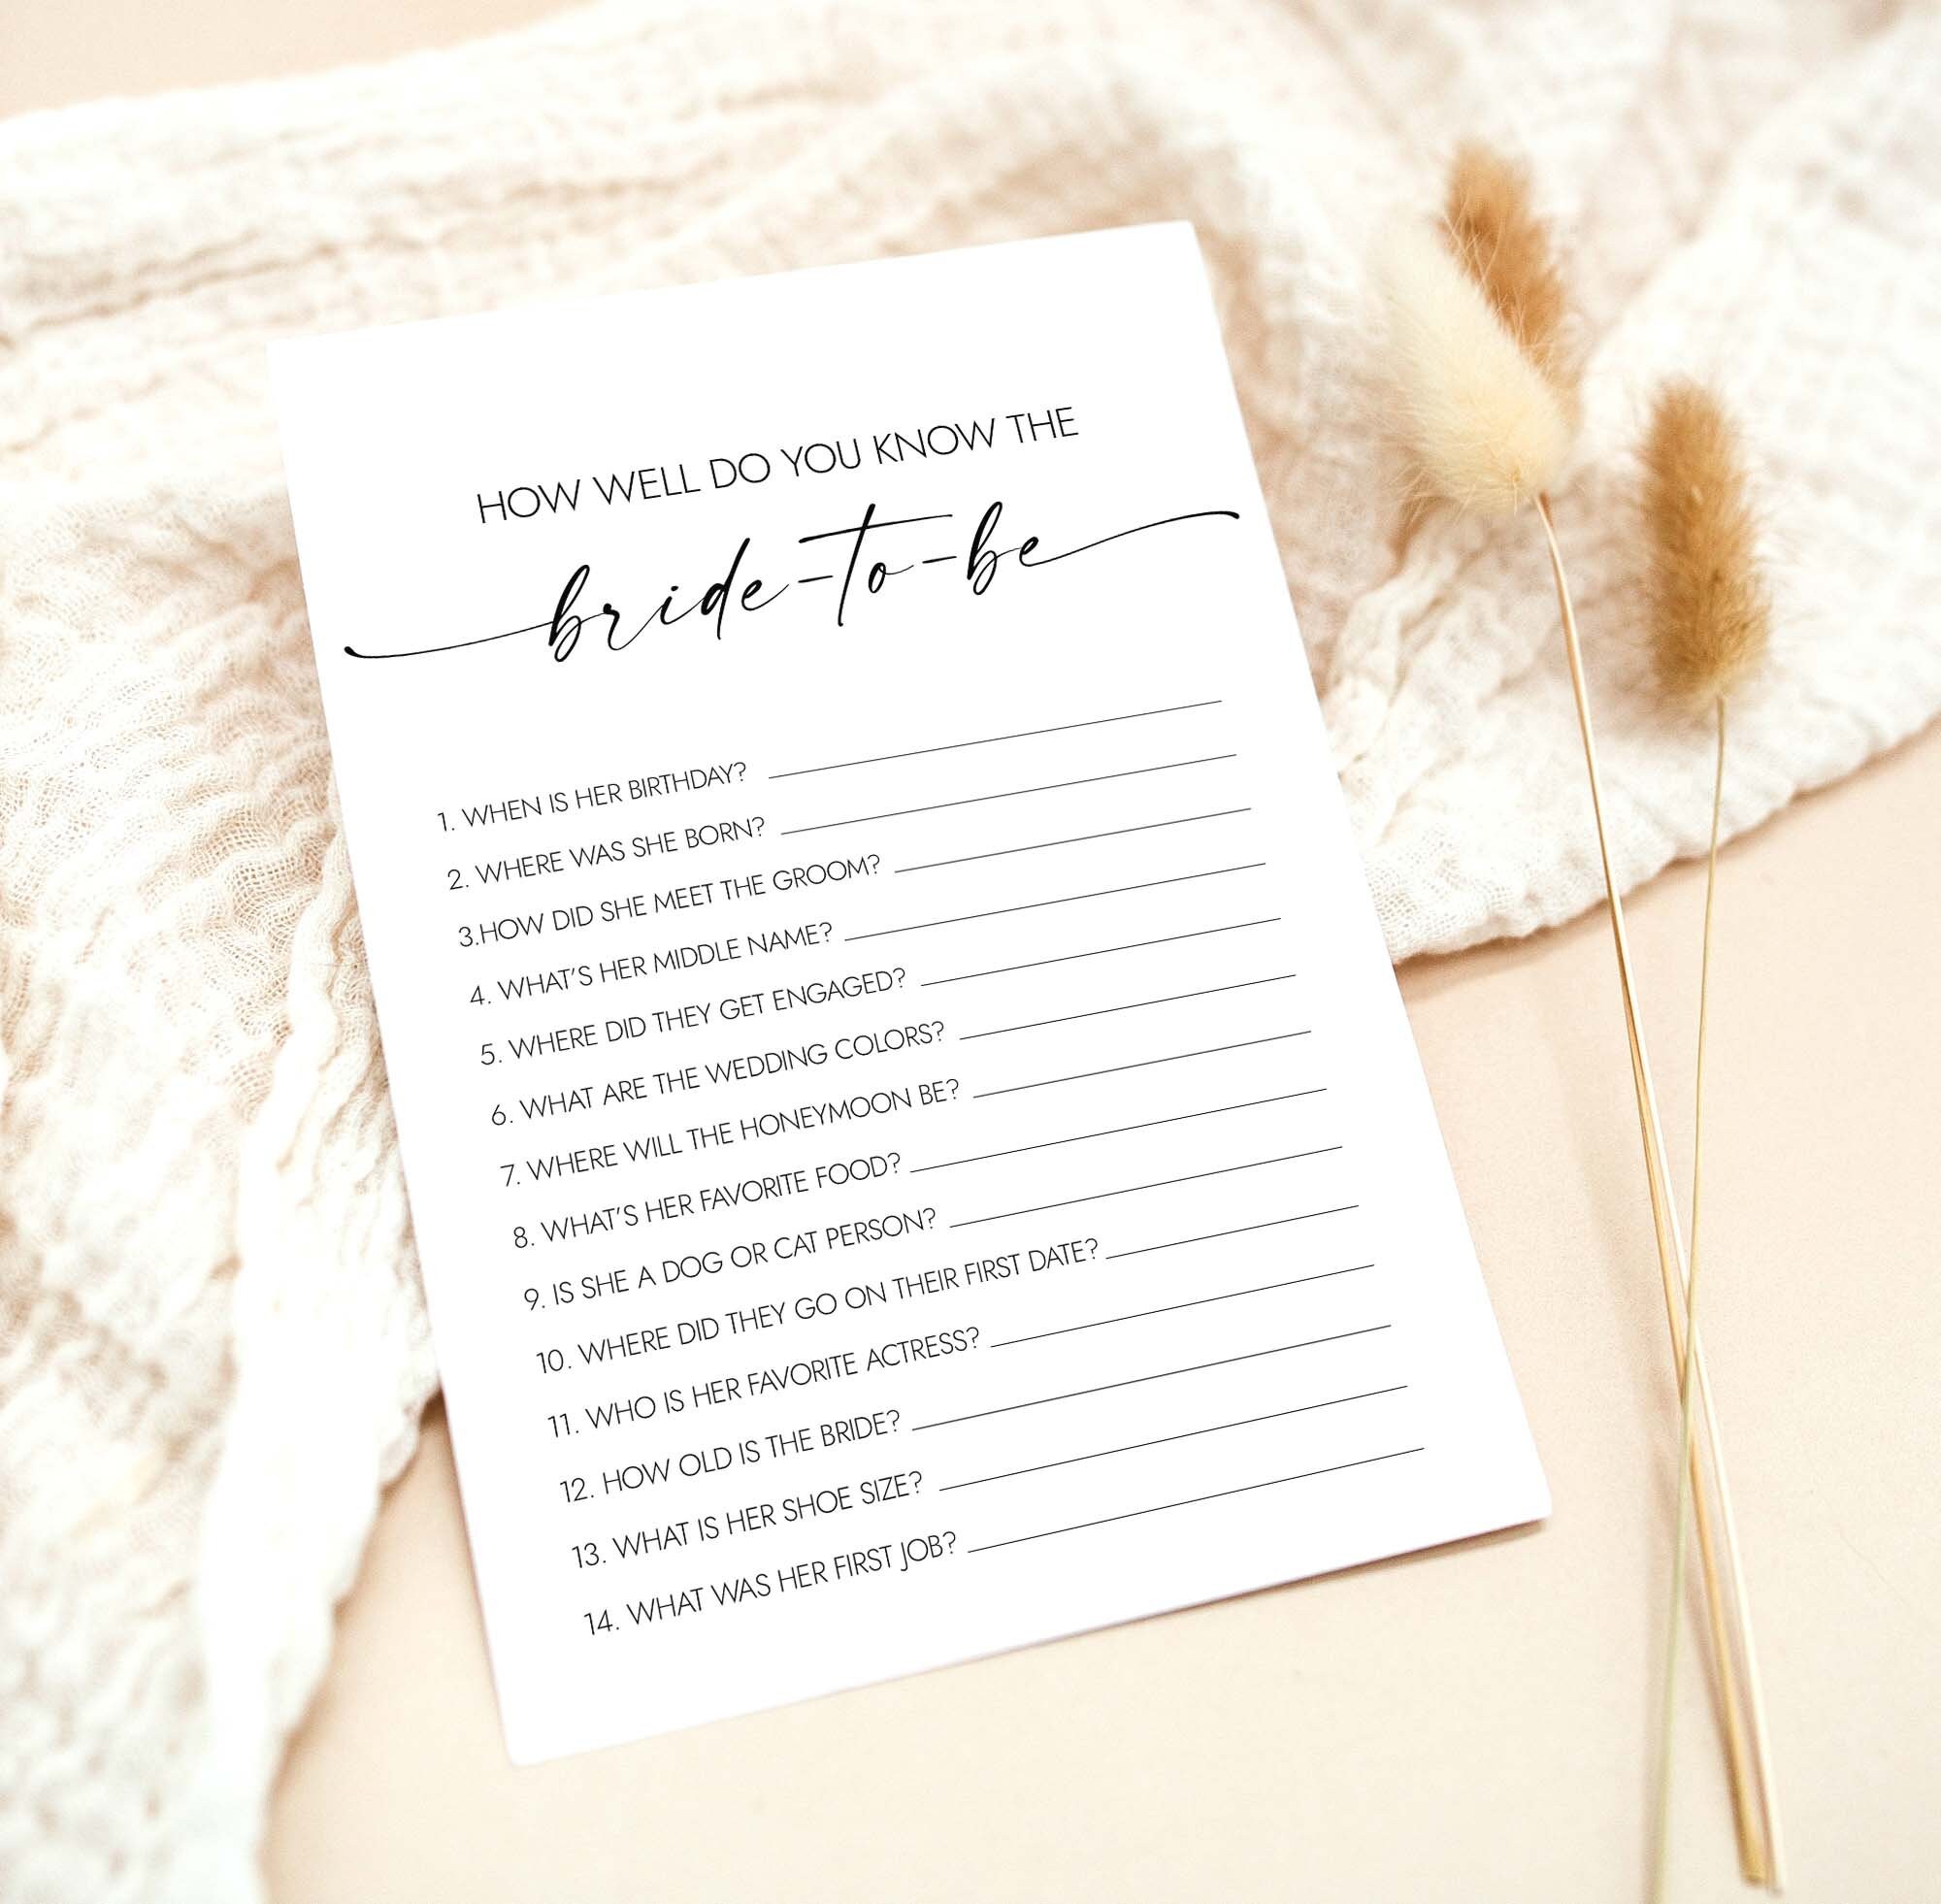 HOW WELL DO YOU KNOW THE
bride-to-be
1. WHEN IS HER BIRTHDAY?
2. WHERE WAS SHE BORN?
3.HOW DID SHE MEET THE GROOM?
4. WHAT'S HER MIDDLE NAME?
5. WHERE DID THEY GET ENGAGED?
6. WHAT ARE THE WEDDING COLORS?
7. WHERE WILL THE HONEYMOON BE?
8. WHAT'S HER FAVORITE FOOD?
9. IS SHE A DOG OR CAT PERSON?
10. WHERE DID THEY GO ON THEIR FIRST DATE?
11. WHO IS HER FAVORITE ACTRESS?
12. HOW OLD IS THE BRIDE?
13. WHAT IS HER SHOE SIZE?
14. WHAT WAS HER FIRST JOB?